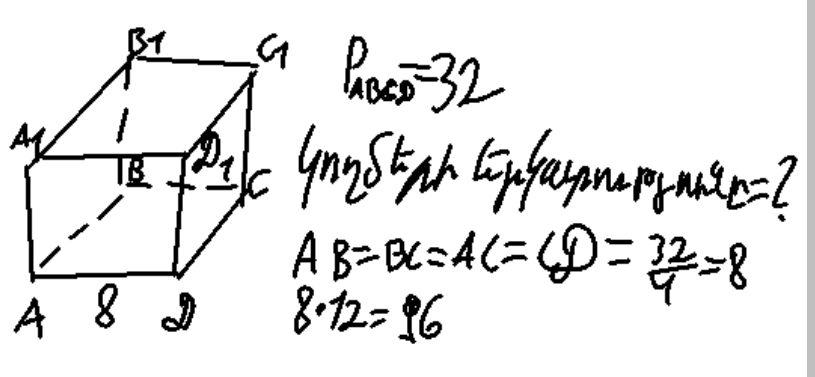 B1
C1
P ABCD = 32
A1
D1
B
C
կողմերի երկարությունը=?
AB=BC=AC=CD=32/4=8
A 8 D
8·12=96